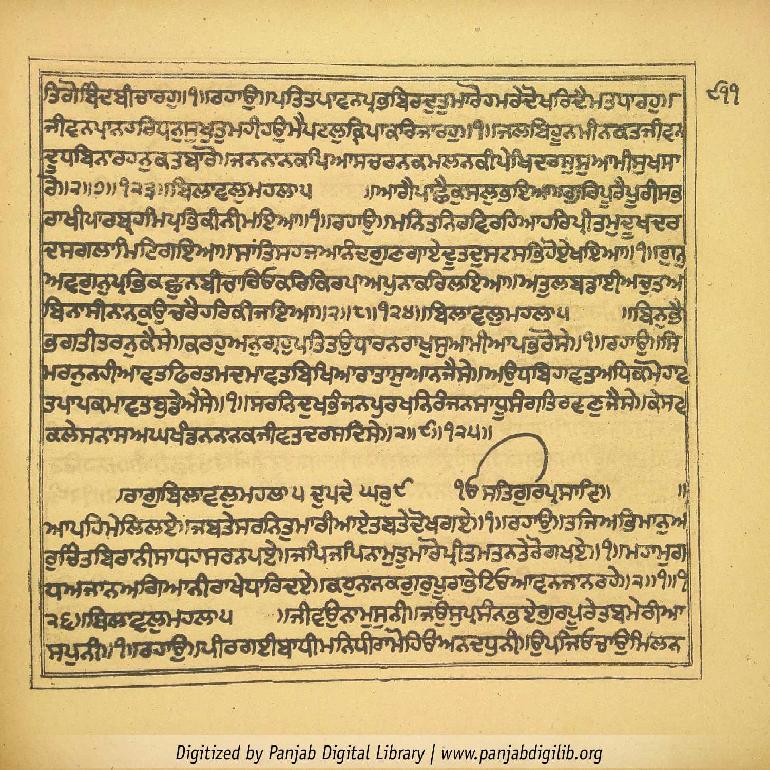 ੯੧੧
ਤਿਗੋਬਿੰਦਬੀਚਾਰਹੁ॥੧॥ਰਹਾਉ॥ਪਤਿਤਪਾਵਨਪ੍ਰਭਬਿਰਦੁਤੁਮਾਰੋਹਮਰੇਦੋਖਰਿਦੈਮਤਧਾਰਹੁ॥
ਜੀਵਨਪ੍ਰਾਨਹਰਿਧਨੁਸੁਖੁਤੁਮਹੀਹਉਮੈਪਟਲੁਕ੍ਰਿਪਾਕਰਿਜਾਰਹੁ॥੧॥ਜਲਬਿਹੂਨਮੀਨਕਤਜੀਵਨ
ਦੂਧਬਿਨਾਰਹਨੁਕਤਬਾਰੋ॥ਜਨਨਾਨਕਪਿਆਸਚਰਨਕਮਲਨਕੀਪੇਖਿਦਰਸੁਸੁਆਮੀਸੁਖਸਾ
ਰੋ॥੨॥੭॥੧੨੩॥ਬਿਲਾਵਲੁਮਹਲਾ੫ ॥ਆਗੈਪਾਛੈਕੁਸਲੁਭਇਆ॥ਗੁਰਿਪੂਰੈਪੂਰੀਸਭ
ਰਾਖੀਪਾਰਬ੍ਰਹਮਿਪ੍ਰਭਿਕੀਨੀਮਇਆ॥੧॥ਰਹਾਉ॥ਮਨਿਤਨਿਰਵਿਰਹਿਆਹਰਿਪ੍ਰੀਤਮੁਦੂਖਦਰ
ਦਸਗਲਾਮਿਟਿਗਇਆ॥ਸਾਂਤਿਸਹਜਆਨੰਦਗੁਣਗਾਏਦੂਤਦੁਸਟਸਭਿਹੋਏਖਇਆ॥੧॥ਗੁਨੁ
ਅਵਗੁਨੁਪ੍ਰਭਿਕਛੁਨਬੀਚਾਰਿਓਕਰਿਕਿਰਪਾਅਪੁਨਾਕਰਿਲਇਆ॥ਅਤੁਲਬਡਾਈਅਚੁਤਅ
ਬਿਨਾਸੀਨਾਨਕੁਉਚਰੈਹਰਿਕੀਜਇਆ॥੨॥੮॥੧੨੪॥ਬਿਲਾਵਲੁਮਹਲਾ੫ ॥ਬਿਨੁਭੈ
ਭਗਤੀਤਰਨੁਕੈਸੇ॥ਕਰਹੁਅਨੁਗ੍ਰਹੁਪਤਿਤਉਧਾਰਨਰਾਖੁਸੁਆਮੀਆਪਭਰੋਸੇ॥੧॥ਰਹਾਉ॥ਸਿ
ਮਰਨੁਨਹੀਆਵਤਫਿਰਤਮਦਮਾਵਤਬਿਖਿਆਰਾਤਾਸੁਆਨਜੈਸੇ॥ਅਉਧਬਿਹਾਵਤਅਧਿਕਮੋਹਾਵ
ਤਪਾਪਕਮਾਵਤਬੁਡੇਐਸੇ॥੧॥ਸਰਨਿਦੁਖਭੰਜਨਪੁਰਖਨਿਰੰਜਨਸਾਧੂਸੰਗਤਿਰਵਣੁਜੈਸੇ॥ਕੇਸਵ
ਕਲੇਸਨਾਸਅਘਖੰਡਨਨਾਨਕਜੀਵਤਦਰਸਦਿਸੇ॥੨॥੯॥੧੨੫॥
ਰਾਗੁਬਿਲਾਵਲੁਮਹਲਾ੫ ਦੁਪਦੇ ਘਰੁ੯ ੴ ਸਤਿਗੁਰਪ੍ਰਸਾਦਿ॥ ॥
ਆਪਹਿਮੇਲਿਲਏ॥ਜਬਤੇਸਰਨਿਤੁਮਾਰੀਆਏਤਬਤੇਦੋਖਗਏ॥੧॥ਰਹਾਉ॥ਤਜਿਅਭਿਮਾਨੁਅ
ਰੁਚਿੰਤਬਿਰਾਨੀਸਾਧਹਸਰਨਪਏ॥ਜਪਿਜਪਿਨਾਮੁਤੁਮਾਰੋਪ੍ਰੀਤਮਤਨਤੇਰੋਗਖਏ॥੧॥ਮਹਾਮੁਗ
ਧਅਜਾਨਅਗਿਆਨੀਰਾਖੇਧਾਰਿਦਏ॥ਕਹੁਨਾਨਕਗੁਰੁਪੂਰਾਭੇਟਿਓਆਵਨਜਾਨਰਹੇ॥੨॥੧॥੧
੨੬॥ਬਿਲਾਵਲੁਮਹਲਾ੫ ॥ਜੀਵਉਨਾਮੁਸੁਨੀ॥ਜਉਸੁਪ੍ਰਸੰਨਭਏਗੁਰਪੂਰੇਤਬਮੇਰੀਆ
ਸਪੁਨੀ॥੧॥ਰਹਾਉ॥ਪੀਰਗਈਬਾਧੀਮਨਿਧੀਰਾਮੋਹਿਓਅਨਦਧੁਨੀ॥ਉਪਜਿਓਚਾਉਮਿਲਨ
Digitized by Panjab Digital Library | www.panjabdigilib.org